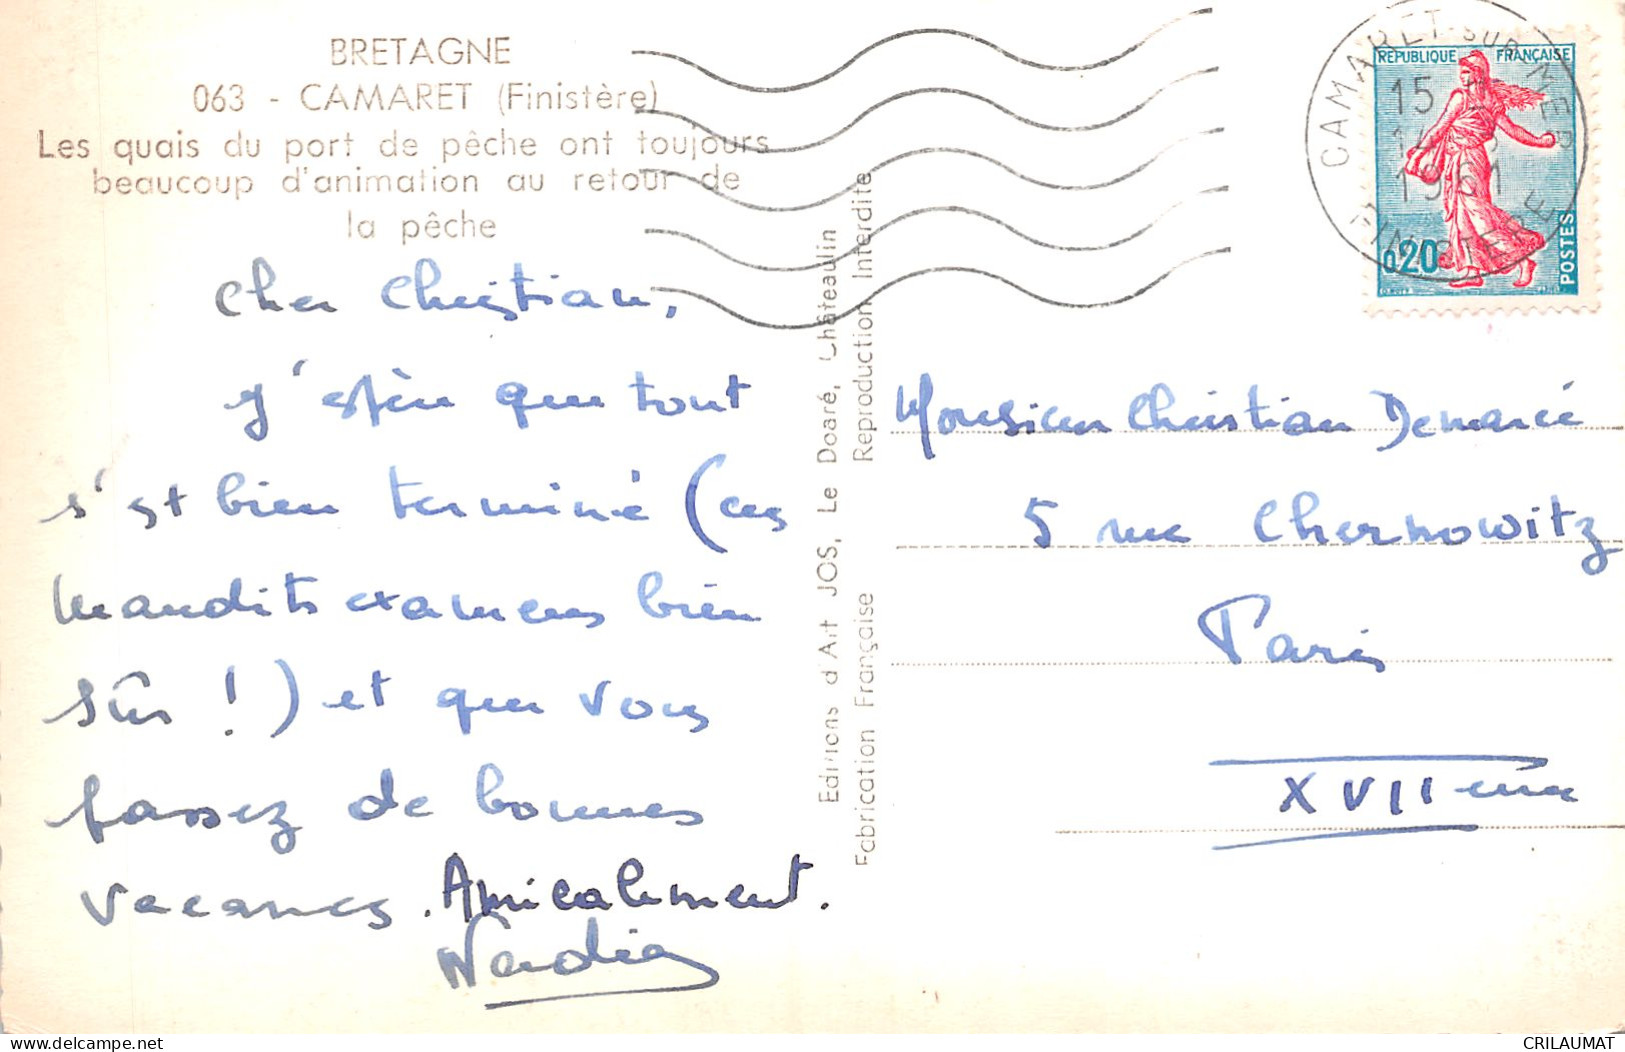 BRETAGNE
063 - CAMARET (Finistère)
Les quais du port de pêche ont toujours
beaucoup d'animation au retour de
la pêche
Cher Christian,
j'espère que tout
s'est bien terminé (ces
maudits examens bien
sûr !) et que vous
passez de bonnes
vacances. Amicalement.
Editions d'Art JOS, Le Doaré, Châteaulin
Fabrication Française Reproduction Interdite
CAMARET-SUR-MER
15
1961
FINISTERE
REPUBLIQUE FRANÇAISE
0,20
POSTES
Monsieur Christian Demarcé
5 rue Chernowitz
Paris
XVIIème
delcampe.net
CRILAUMAT